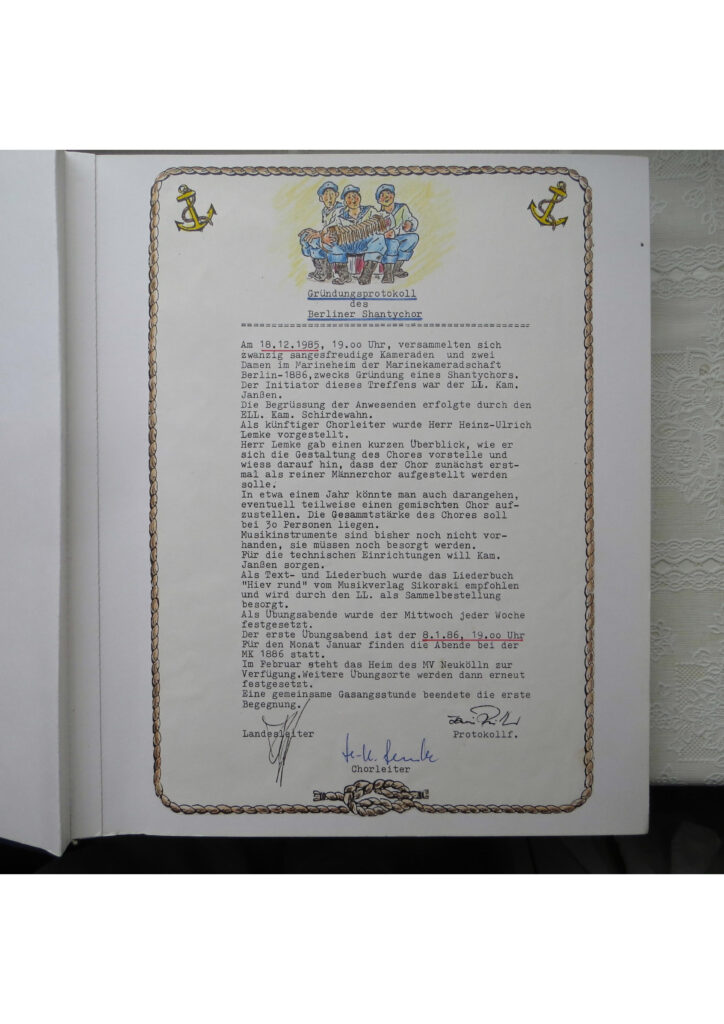 Gründungsprotokoll
des
Berliner Shantychor
Am 18.12.1985, 19.oo Uhr, versammelten sich
zwanzig sangesfreudige Kameraden und zwei
Damen im Marineheim der Marinekameradschaft
Berlin-1886,zwecks Gründung eines Shantychors.
Der Initiator dieses Treffens war der LL. Kam.
Janßen.
Die Begrüssung der Anwesenden erfolgte durch den
ELL. Kam. Schirdewahn.
Als künftiger Chorleiter wurde Herr Heinz-Ulrich
Lemke vorgestellt.
Herr Lemke gab einen kurzen Überblick, wie er
sich die Gestaltung des Chores vorstelle und
wiess darauf hin, dass der Chor zunächst erst-
mal als reiner Männerchor aufgestellt werden
solle.
In etwa einem Jahr könnte man auch darangehen,
eventuell teilweise einen gemischten Chor auf-
zustellen. Die Gesammtstärke des Chores soll
bei 3o Personen liegen.
Musikinstrumente sind bisher noch nicht vor-
handen, sie müssen noch besorgt werden.
Für die technischen Einrichtungen will Kam.
Janßen sorgen.
Als Text- und Liederbuch wurde das Liederbuch
"Hiev rund" vom Musikverlag Sikorski empfohlen
und wird durch den LL. als Sammelbestellung
besorgt.
Als Übungsabende wurde der Mittwoch jeder Woche
festgesetzt.
Der erste Übungsabend ist der 8.1.86, 19.oo Uhr
Für den Monat Januar finden die Abende bei der
MK 1886 statt.
Im Februar steht das Heim des MV Neukölln zur
Verfügung.Weitere Übungsorte werden dann erneut
festgesetzt.
Eine gemeinsame Gasangsstunde beendete die erste
Begegnung.
Landesleiter Protokollf.
H-U. Lemke
Chorleiter